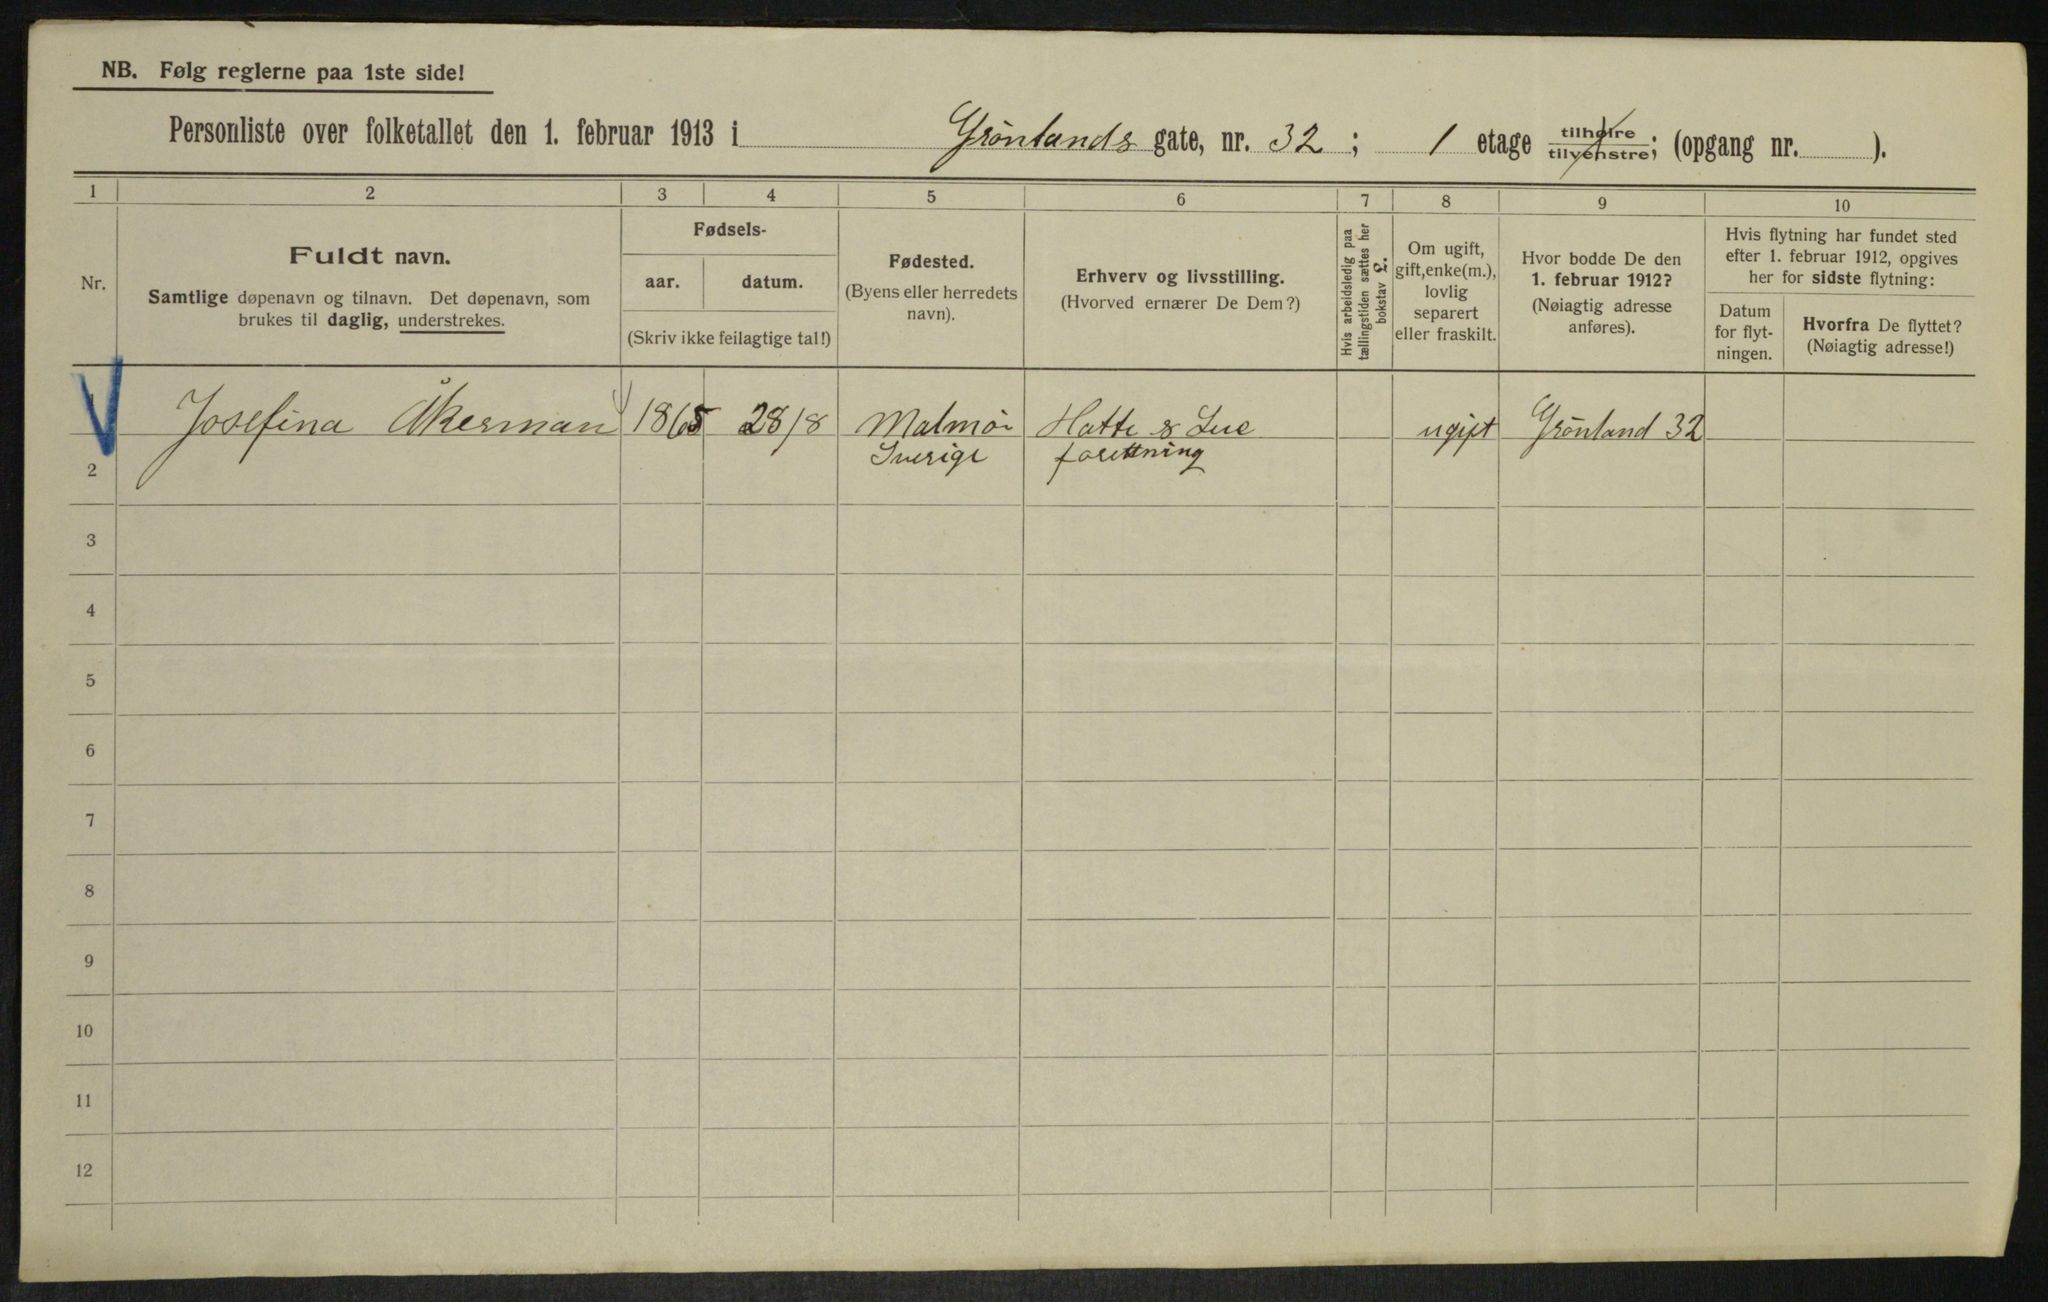 NB. Følg reglerne paa 1ste side!
Personliste over folketallet den 1. februar 1913 i Grönlands gate, nr. 32; 1 etage tilhøire tilvenstre; (opgang nr. ).
1 2 3 4 5 6 7 8 9 10
Nr.
Fuldt navn.
Samtlige døpenavn og tilnavn. Det døpenavn, som
brukes til daglig, understrekes.
Fødsels-
aar. datum.
(Skriv ikke feilagtige tal!)
Fødested.
(Byens eller herredets
navn).
Erhverv og livsstilling.
(Hvorved ernærer De Dem?)
Hvis arbeidsledig paa
tællingstiden sættes her
bokstav L.
Om ugift,
gift, enke(m.),
lovlig
separert
eller fraskilt.
Hvor bodde De den
1. februar 1912?
(Nøiagtig adresse
anføres).
Hvis flytning har fundet sted
efter 1. februar 1912, opgives
her for sidste flytning:
Datum
for flyt-
ningen.
Hvorfra De flyttet?
(Nøiagtig adresse!)
1 Josefina Åkerman 1865 28/8 Malmö Hatte & ugift Grönland 32
2 Sverige foretning
3
4
5
6
7
8
9
10
11
12